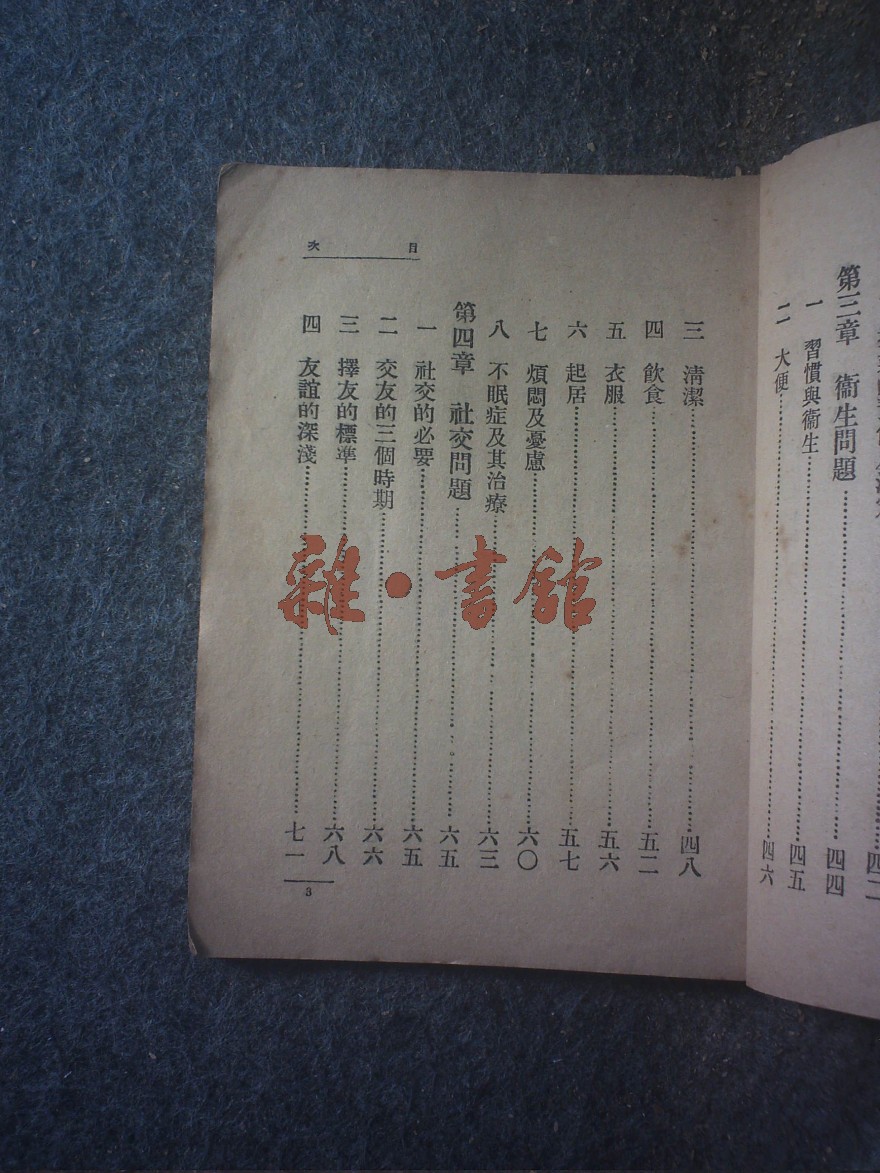 第三章　衞生問題……四四
一　習慣與衞生……四五
二　大便……四六
目次
三　淸潔……四八
四　飲食……五二
五　衣服……五六
六　起居……五七
七　煩悶及憂慮……六〇
八　不眠症及其治療……六三
第四章　社交問題……六五
一　社交的必要……六五
二　交友的三個時期……六六
三　擇友的標準……六八
四　友誼的深淺……七一
3
雜·書館